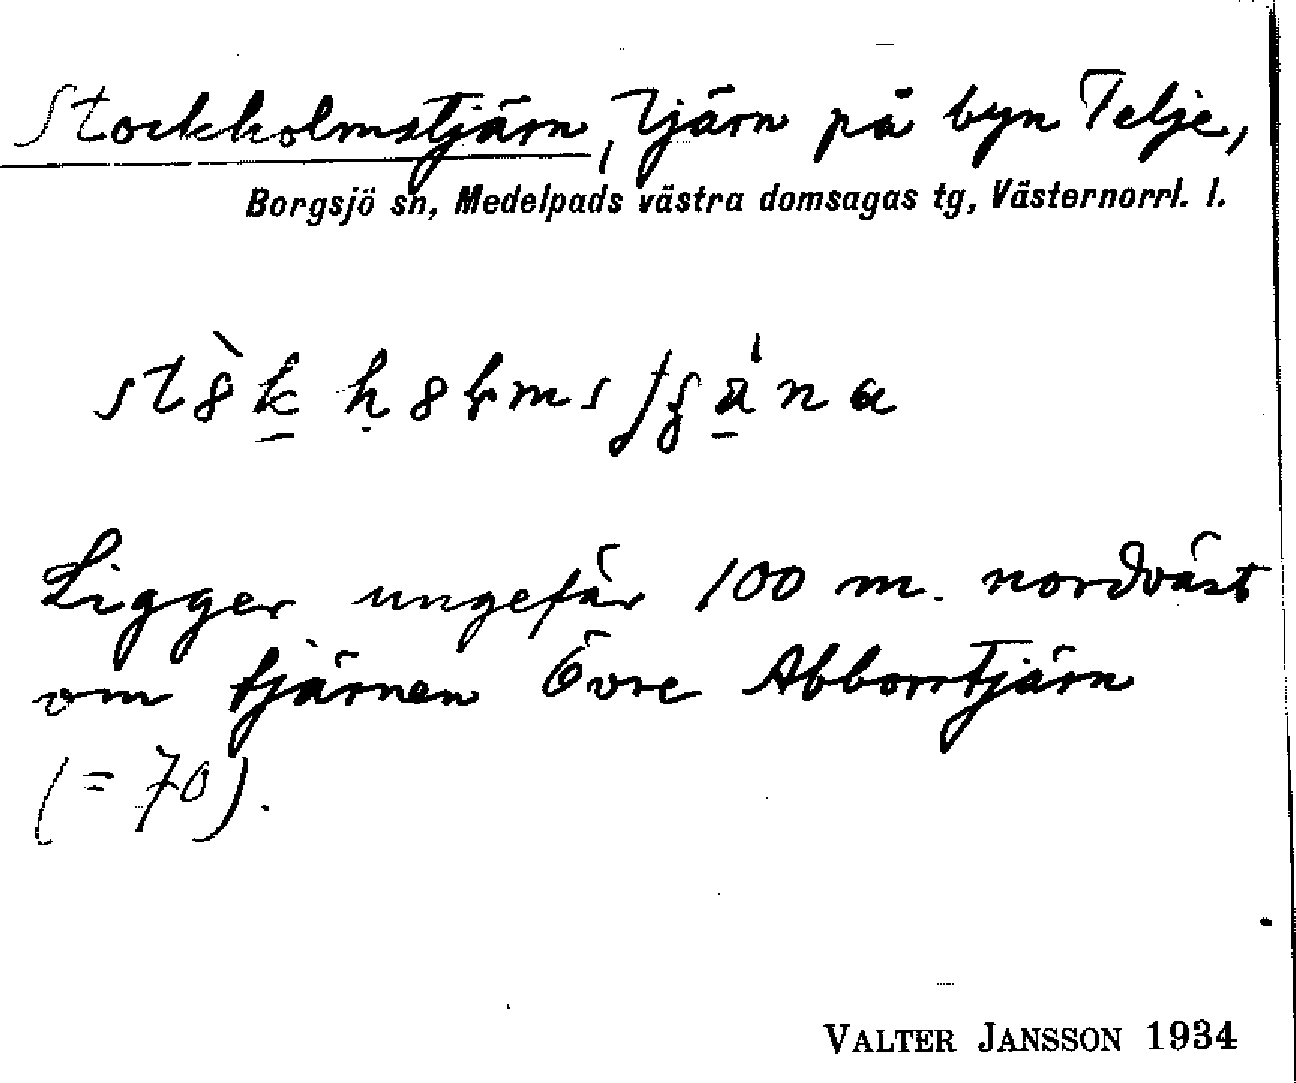 Stockholmstjärn, Tjärn på byn Telje,
Borgsjö sn, Medelpads västra domsagas tg, Västernorrl. l.
Ligger ungefär 100 m. nordväst
om tjärnen Övre Abborrtjärn
(= 70).
VALTER JANSSON 1934